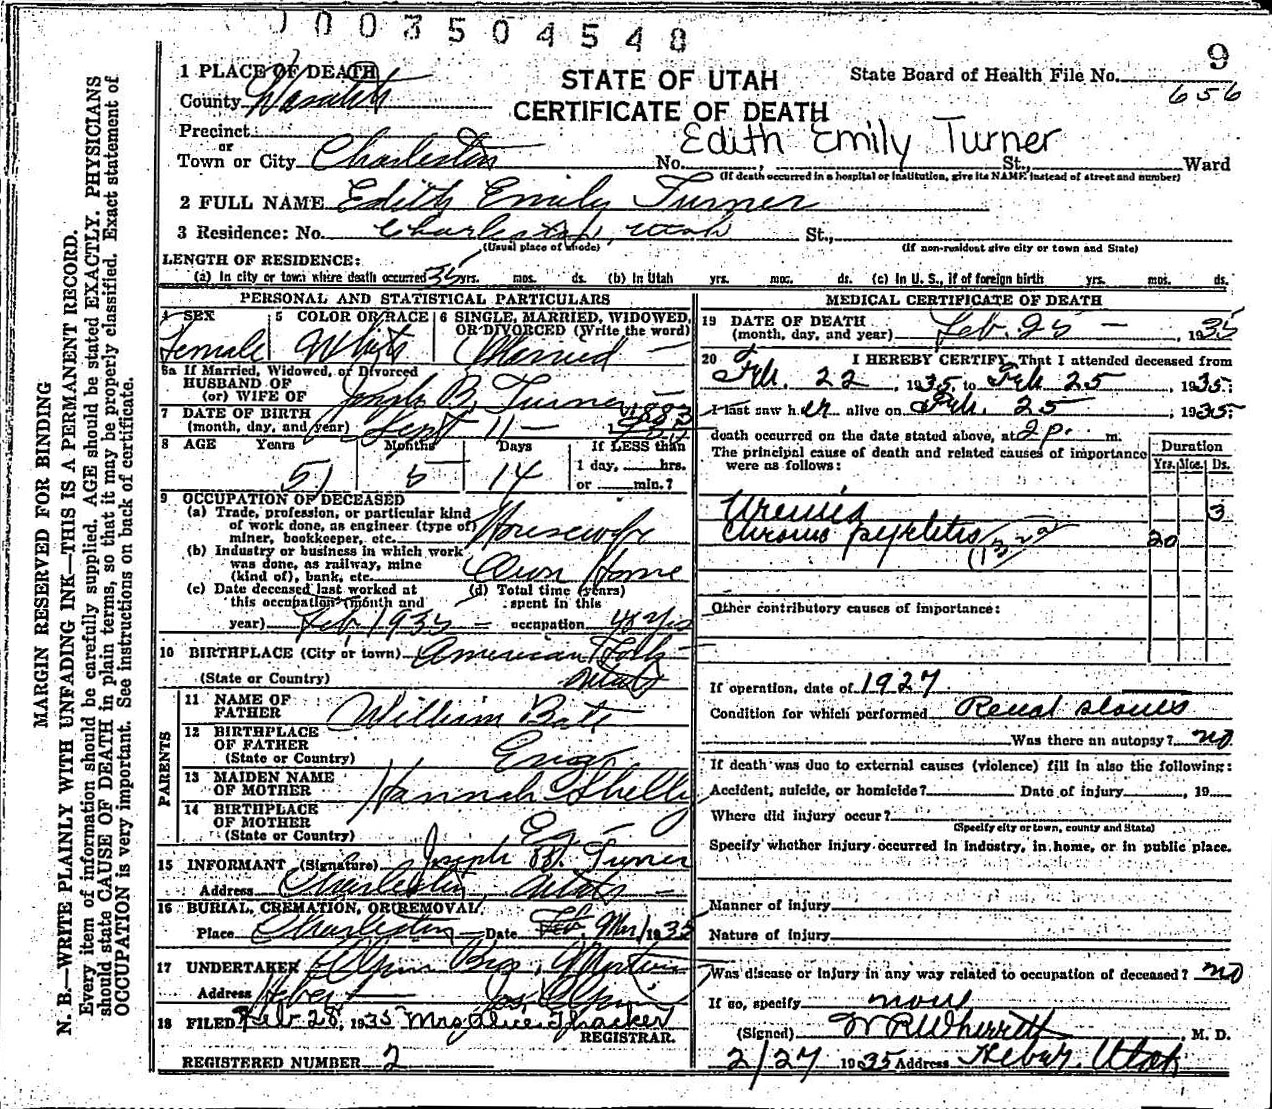 0003504548
9
1 PLACE OF DEATH
STATE OF UTAH
CERTIFICATE OF DEATH
State Board of Health File No.
656
County Wasatch
Precinct
or
Town or City Charleston No. Edith Emily Turner St., Ward
(If death occurred in a hospital or institution, give its NAME instead of street and number)
2 FULL NAME Edith Emily Turner
3 Residence: No. Charleston, Utah St.,
(Usual place of abode) (If non-resident give city or town and State)
LENGTH OF RESIDENCE:
(a) In city or town where death occurred 35 yrs. mos. ds. (b) In Utah yrs. mos. ds. (c) In U. S., if of foreign birth yrs. mos. ds.
PERSONAL AND STATISTICAL PARTICULARS
4 SEX 5 COLOR OR RACE 6 SINGLE, MARRIED, WIDOWED, OR DIVORCED (Write the word)
Female White Married
6a If Married, Widowed, or Divorced
HUSBAND OF
(or) WIFE OF Joseph B. Turner
7 DATE OF BIRTH
(month, day, and year) Sept 11 - 1883
8 AGE Years Months Days If LESS than
51 5 14 1 day, hrs.
or min.?
9 OCCUPATION OF DECEASED
(a) Trade, profession, or particular kind
of work done, as engineer (type of)
miner, bookkeeper, etc. Housewife
(b) Industry or business in which work
was done, as railway, mine
(kind of), bank, etc. Own Home
(c) Date deceased last worked at (d) Total time (years)
this occupation (month and spent in this
year) Feb 1935 occupation yrs
10 BIRTHPLACE (City or town) American Fork
(State or Country) Utah
PARENTS
11 NAME OF
FATHER William Bate
12 BIRTHPLACE
OF FATHER Eng.
(State or Country)
13 MAIDEN NAME
OF MOTHER Hannah Shelly
14 BIRTHPLACE
OF MOTHER Eng
(State or Country)
15 INFORMANT (Signature) Joseph B. Turner
Address Charleston, Utah
16 BURIAL, CREMATION, OR REMOVAL,
Place Charleston Date Feb Mar 1 1935
17 UNDERTAKER Olpin Bros,
Address Heber
18 FILED Feb 28, 1935 Mrs Alice Thacker
REGISTRAR.
REGISTERED NUMBER 2
MEDICAL CERTIFICATE OF DEATH
19 DATE OF DEATH
(month, day, and year) Feb. 25 - , 1935
20 I HEREBY CERTIFY, That I attended deceased from
Feb. 22, 1935, to Feb 25, 1935;
I last saw her alive on Feb. 25, 1935;
death occurred on the date stated above, at 2 p. m.
The principal cause of death and related causes of importance
were as follows:
Duration
Yrs. Mos. Ds.
Uremia 3
Chronic pyelitis 20
Other contributory causes of importance:
If operation, date of 1927
Condition for which performed Renal stones
Was there an autopsy? no
If death was due to external causes (violence) fill in also the following:
Accident, suicide, or homicide? Date of injury , 19
Where did injury occur?
(Specify city or town, county and State)
Specify whether injury occurred in industry, in home, or in public place.
Manner of injury
Nature of injury
Was disease or injury in any way related to occupation of deceased? no
If so, specify none
(Signed) W R Wherritt, M. D.
2/27 1935 Address Heber, Utah
MARGIN RESERVED FOR BINDING
N. B.—WRITE PLAINLY WITH UNFADING INK—THIS IS A PERMANENT RECORD.
Every item of information should be carefully supplied. AGE should be stated EXACTLY. PHYSICIANS
should state CAUSE OF DEATH in plain terms, so that it may be properly classified. Exact statement of
OCCUPATION is very important. See instructions on back of certificate.